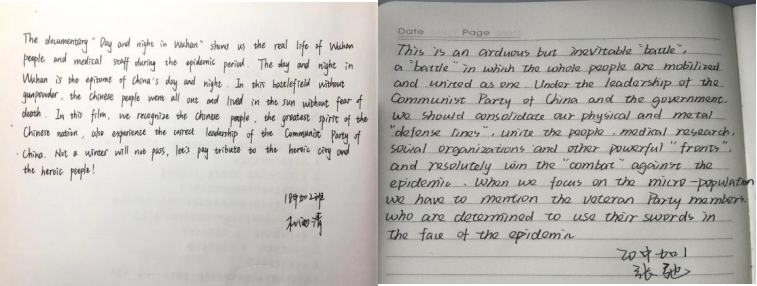 The documentary " Day and night in Wuhan" shows us the real life of Wuhan
people and medical staff during the epidemic period. The day and night in
Wuhan is the epitome of China's day and night. In this battlefield without
gunpowder, the Chinese people went all out and lived in the sun without fear of
death. In this film, we recognize the Chinese people, the greatest spirit of the
Chinese nation, also experience the correct leadership of the Communist Party of
China. Not a winter will not pass, let's pay tribute to the heroic city and
the heroic people!
Date Page
This is an arduous but inevitable "battle",
a "battle" in which the whole people are mobilized
and united as one. Under the leadership of the
Communist Party of China and the government,
we should consolidate our physical and metal
"defense lines", unite the people, medical research,
social organizations and other powerful "fronts",
and resolutely win the "combat" against the
epidemic. When we focus on the micro-population
we have to mention the veteran Party members
who are determined to use their swords in
the face of the epidemic
张弛